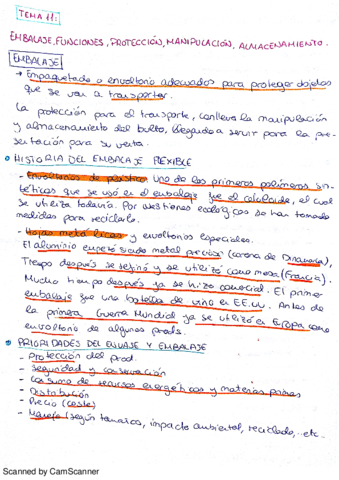 TEMA 11:
EMBALAJE, FUNCIONES, PROTECCIÓN, MANIPULACIÓN, ALMACENAMIENTO.
EMBALAJE
→ Empaquetado o envoltorio adecuados para proteger objetos
que se van a transportar.
La protección para el transporte, conlleva la manipulación
y almacenamiento del bulto, llegando a servir para la pre-
sentación para su venta.
HISTORIA DEL EMBALAJE FLEXIBLE
- Envoltorios de plástico: uno de los primeros polímeros sin-
téticos que se usó en el embalaje fue el celoloide, el cual
se utiliza todavía. Por cuestiones ecológicas se han tomado
medidas para reciclarlo.
- Hojas metálicas y envoltorios especiales.
El aluminio empezó siendo metal precioso (corona de Dinamarca),
Tiempo después se refinó y se utilizó como mesa (Francia).
Mucho tiempo después ya se hizo comercial. El primer
embalaje fue una botella de vino en EE.UU. Antes de
la primera Guerra Mundial ya se utilizó en Europa como
envoltorio de algunos prods.
PRIORIDADES DEL ENVASE Y EMBALAJE
- Protección del prod.
- Seguridad y conservación
- Consumo de recursos energéticos y materias primas
- Distribución
- Precio (coste)
- Manejo (según tamaños, impacto ambiental, reciclado,... etc.
Scanned by CamScanner